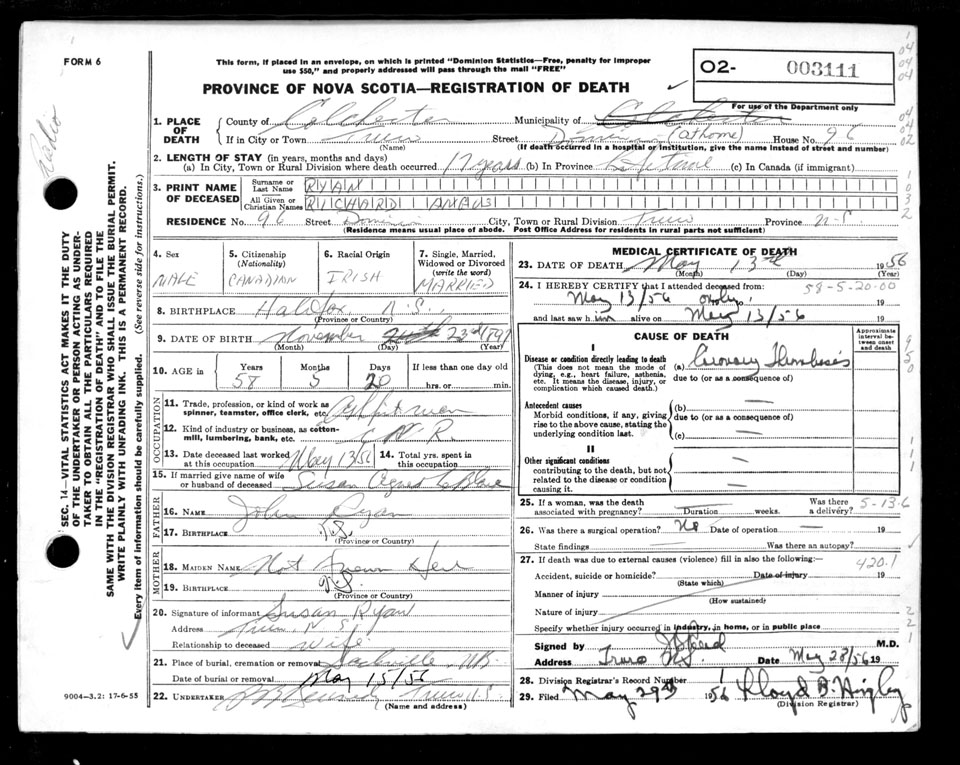 FORM 6
This form, if placed in an envelope, on which is printed "Dominion Statistics—Free, penalty for improper
use $50," and properly addressed will pass through the mail "FREE"
O2- 003111
For use of the Department only
PROVINCE OF NOVA SCOTIA—REGISTRATION OF DEATH
1. PLACE OF DEATH
County of Colchester Municipality of Colchester
If in City or Town Truro Street Dominion (at home) House No. 96
(Name) (If death occurred in a hospital or institution, give the name instead of street and number)
2. LENGTH OF STAY (in years, months and days)
(a) In City, Town or Rural Division where death occurred 17 years (b) In Province Life Time (c) In Canada (if immigrant)
3. PRINT NAME OF DECEASED
Surname or Last Name RYAN
All Given or Christian Names RICHARD
RESIDENCE No. 96 Street Dominion City, Town or Rural Division Truro Province N.S.
(Residence means usual place of abode. Post Office Address for residents in rural parts not sufficient)
4. Sex MALE
5. Citizenship (Nationality) CANADIAN
6. Racial Origin IRISH
7. Single, Married, Widowed or Divorced (write the word) MARRIED
8. BIRTHPLACE Halifax N.S.
(Province or Country)
9. DATE OF BIRTH November 23rd 1897
(Month) (Day) (Year)
10. AGE in Years 58 Months 5 Days 20 If less than one day old hrs. or min.
OCCUPATION
11. Trade, profession, or kind of work as spinner, teamster, office clerk, etc.
12. Kind of industry or business, as cotton-mill, lumbering, bank, etc. C.N.R.
13. Date deceased last worked at this occupation May 13/56
14. Total yrs. spent in this occupation
15. If married give name of wife or husband of deceased Susan Agnes
FATHER
16. NAME John Ryan
17. BIRTHPLACE N.S.
(Province or Country)
MOTHER
18. MAIDEN NAME Not Known Here
19. BIRTHPLACE N.S.
(Province or Country)
20. Signature of informant Susan Ryan
Address Truro N.S.
Relationship to deceased Wife
21. Place of burial, cremation or removal Sackville, NB
Date of burial or removal May 15/56
22. UNDERTAKER Truro N.S.
(Name and address)
MEDICAL CERTIFICATE OF DEATH
23. DATE OF DEATH May 13th 1956
(Month) (Day) (Year)
24. I HEREBY CERTIFY that I attended deceased from: 58-5-20-00
May 13/56 only 19
and last saw him alive on May 13/56 19
CAUSE OF DEATH
Approximate interval between onset and death
I
Disease or condition directly leading to death (a) Coronary Thrombosis
(This does not mean the mode of dying, e.g., heart failure, asthenia, etc. It means the disease, injury, or complication which caused death.)
due to (or as a consequence of)
Antecedent causes (b) —
Morbid conditions, if any, giving rise to the above cause, stating the underlying condition last.
due to (or as a consequence of)
(c) —
II
Other significant conditions
contributing to the death, but not related to the disease or condition causing it.
25. If a woman, was the death associated with pregnancy? Duration weeks. Was there a delivery? 5-13-6
26. Was there a surgical operation? No Date of operation — 19
State findings Was there an autopsy?
27. If death was due to external causes (violence) fill in also the following:— 420.1
Accident, suicide or homicide? Date of injury 19
(State which)
Manner of injury
(How sustained)
Nature of injury
Specify whether injury occurred in industry, in home, or in public place
Signed by M.D.
Address Truro NS Date May 28/56 19
28. Division Registrar's Record Number
29. Filed May 29th 1956 Lloyd B.
(Division Registrar)
SEC. 14—VITAL STATISTICS ACT MAKES IT THE DUTY
OF THE UNDERTAKER OR PERSON ACTING AS UNDERTAKER
TO OBTAIN ALL THE PARTICULARS REQUIRED
IN THE "REGISTRATION OF DEATH" AND TO FILE THE
SAME WITH THE DIVISION REGISTRAR WHO SHALL ISSUE THE BURIAL PERMIT.
WRITE PLAINLY WITH UNFADING INK. THIS IS A PERMANENT RECORD.
Every item of information should be carefully supplied. (See reverse side for instructions.)
9004-3.2: 17-6-55